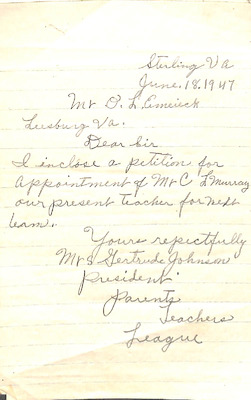 Sterling Va
June. 18. 1947
Mr O. L. Emerick
Leesburg Va.
Dear Sir
I inclose a petition for
appointment of Mr C L Murray
our present teacher for next
team.
Yours repectfully
Mrs Gertrude Johnson
President
Parents
Teachers
League